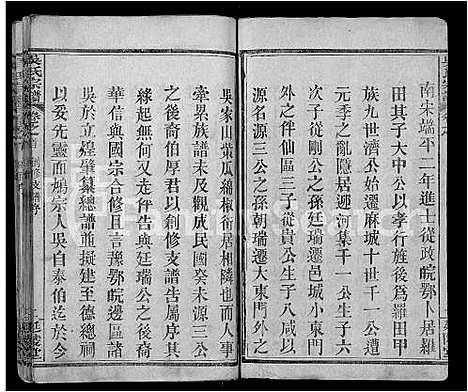 南宋端平二年進士從政皖鄂卜居羅
田其子大中公以孝行旌後為羅田甲
族九世濟公始遷麻城十世有千一公
元季之亂隱居遯河集千一公生子六
次子從剛公之孫廷瑞遷邑城小東門
之外仕仙區三子從貴公生子八咸以
源名源三公之孫朝瑞遷大東門外之
吳家山葉瓜繡椒衍居相隣也而人事
牽累族譜未及觀成民國癸未源三公
之後裔伯厚君以創修支譜告屬序其
緣起無何又适伻告與國
華信與國宗合修引且言豫鄂皖邊區諸
吳於立煌肇纂總譜並擬建至德總祠
以妥先靈而煥宗人吳自泰伯迄於今
吳氏宗譜
卷之首
創修支譜序
延陵堂
FamilySearch